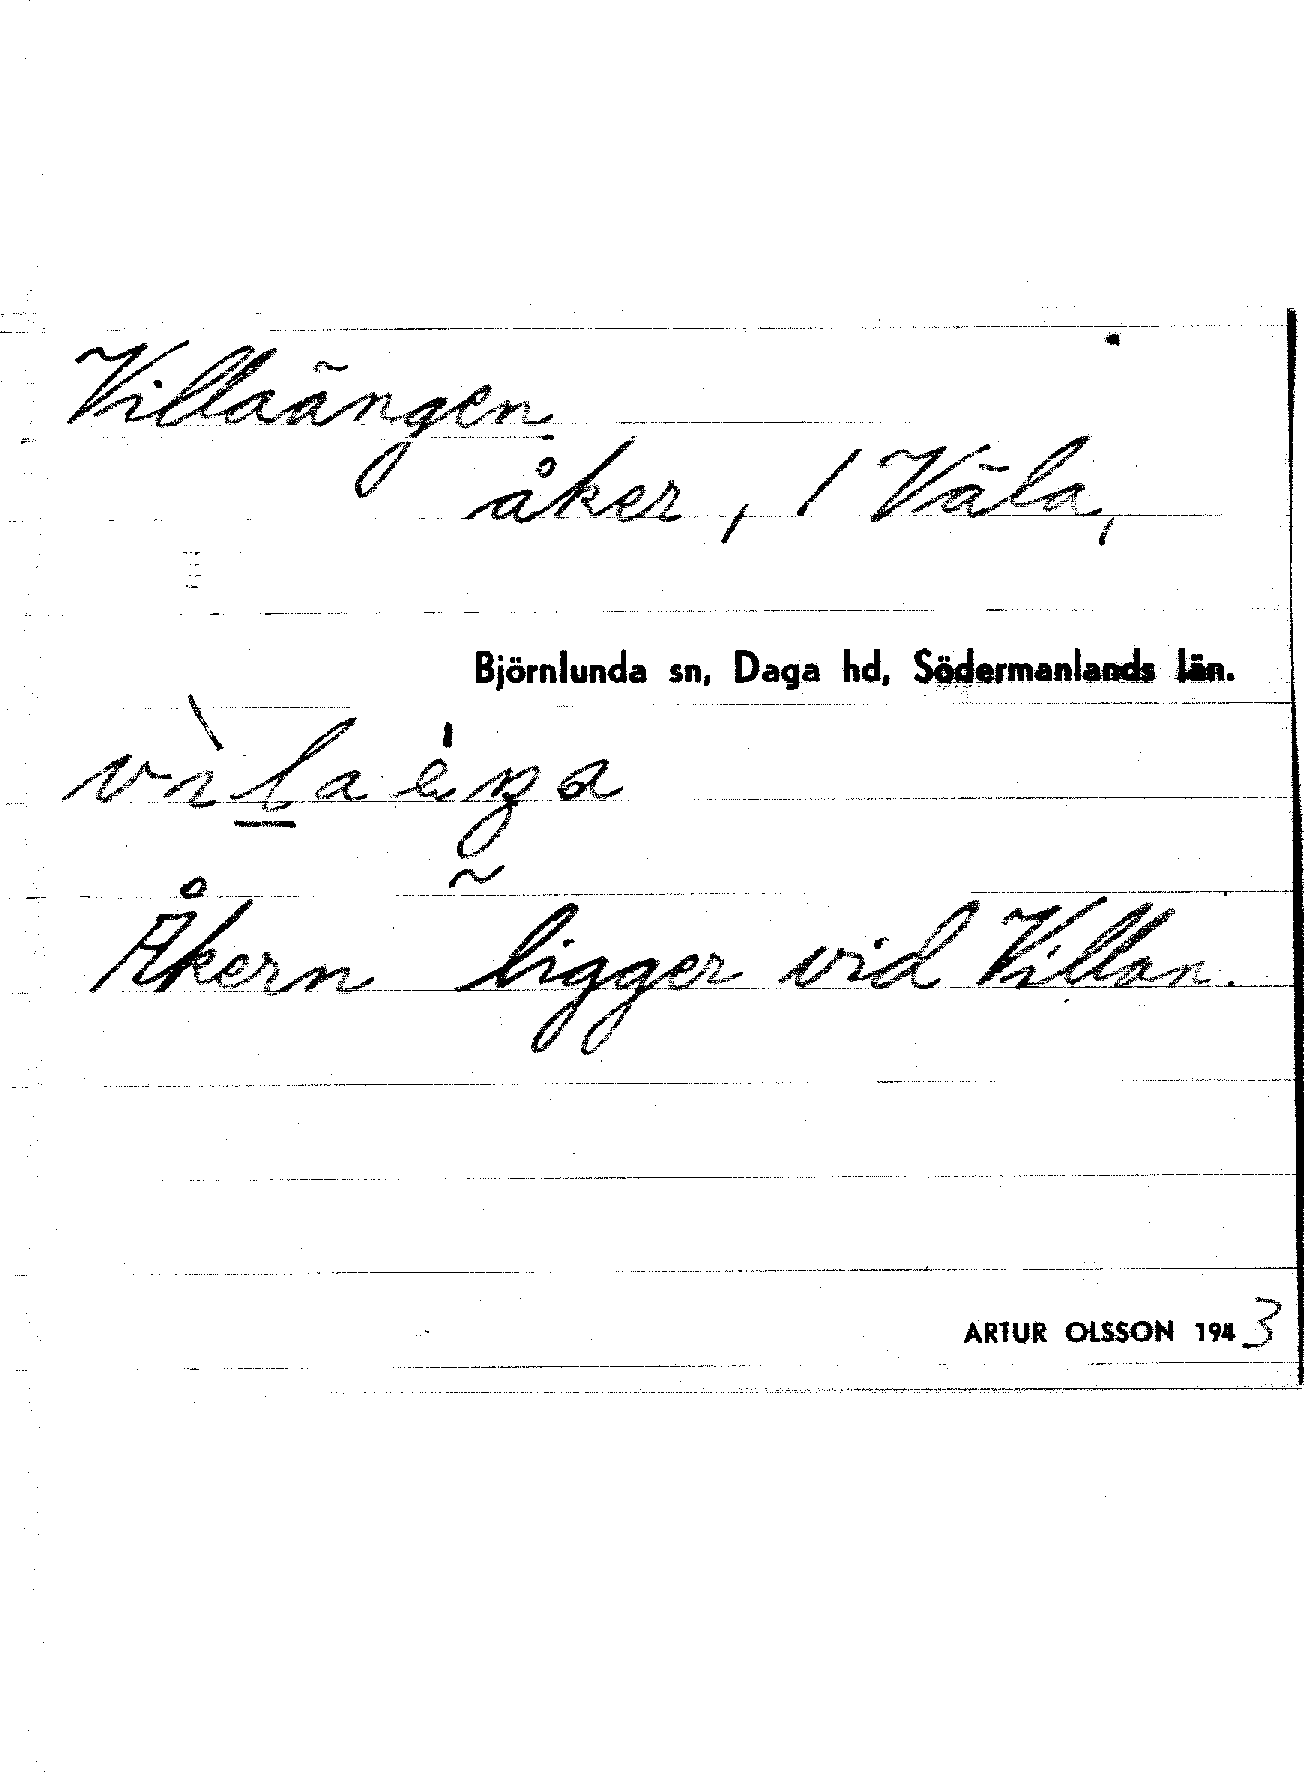 Villaängen
åker, 1 Väla,
Björnlunda sn, Daga hd, Södermanlands län.
Åkern ligger vid Villan.
ARTUR OLSSON 1943